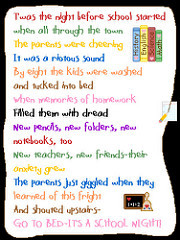 T'was the night before school started
when all through the town
The parents were cheering
It was a riotous sound
By eight the kids were washed
and tucked into bed
when memories of homework
Filled them with dread
New pencils, new folders, new
notebooks, too
New teachers, new friends-their
anxiety grew
The parents just giggled when they
learned of this fright
And shouted upstairs-
GO TO BED-IT'S A SCHOOL NIGHT!!
History
English
Science
Math